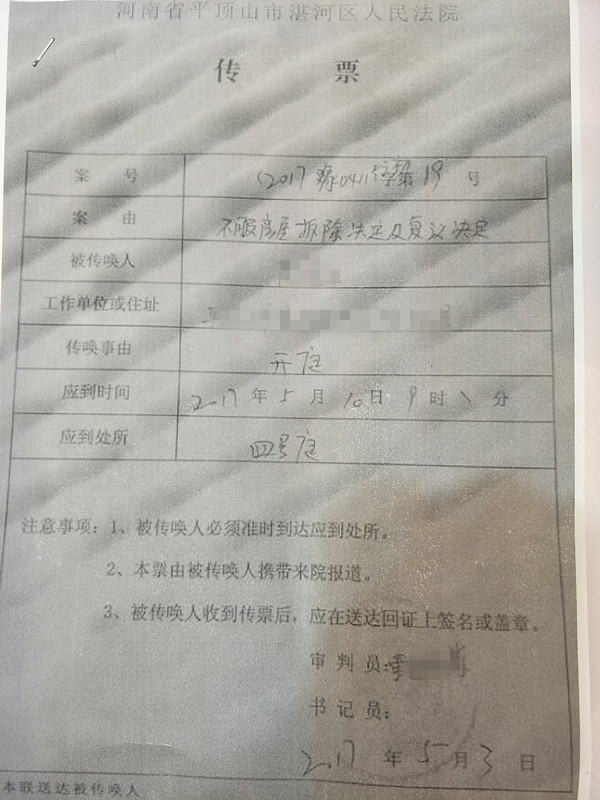 河南省平顶山市湛河区人民法院
传 票
案 号 (2017)豫0411行初字第19号
案 由 不服房屋拆除决定及复议决定
被传唤人
工作单位或住址
传唤事由 开庭
应到时间 2017年5月10日9时 分
应到处所 四号庭
注意事项：1、被传唤人必须准时到达应到处所。
2、本票由被传唤人携带来院报道。
3、被传唤人收到传票后，应在送达回证上签名或盖章。
审 判 员：
书 记 员：
2017年5月3日
本联送达被传唤人